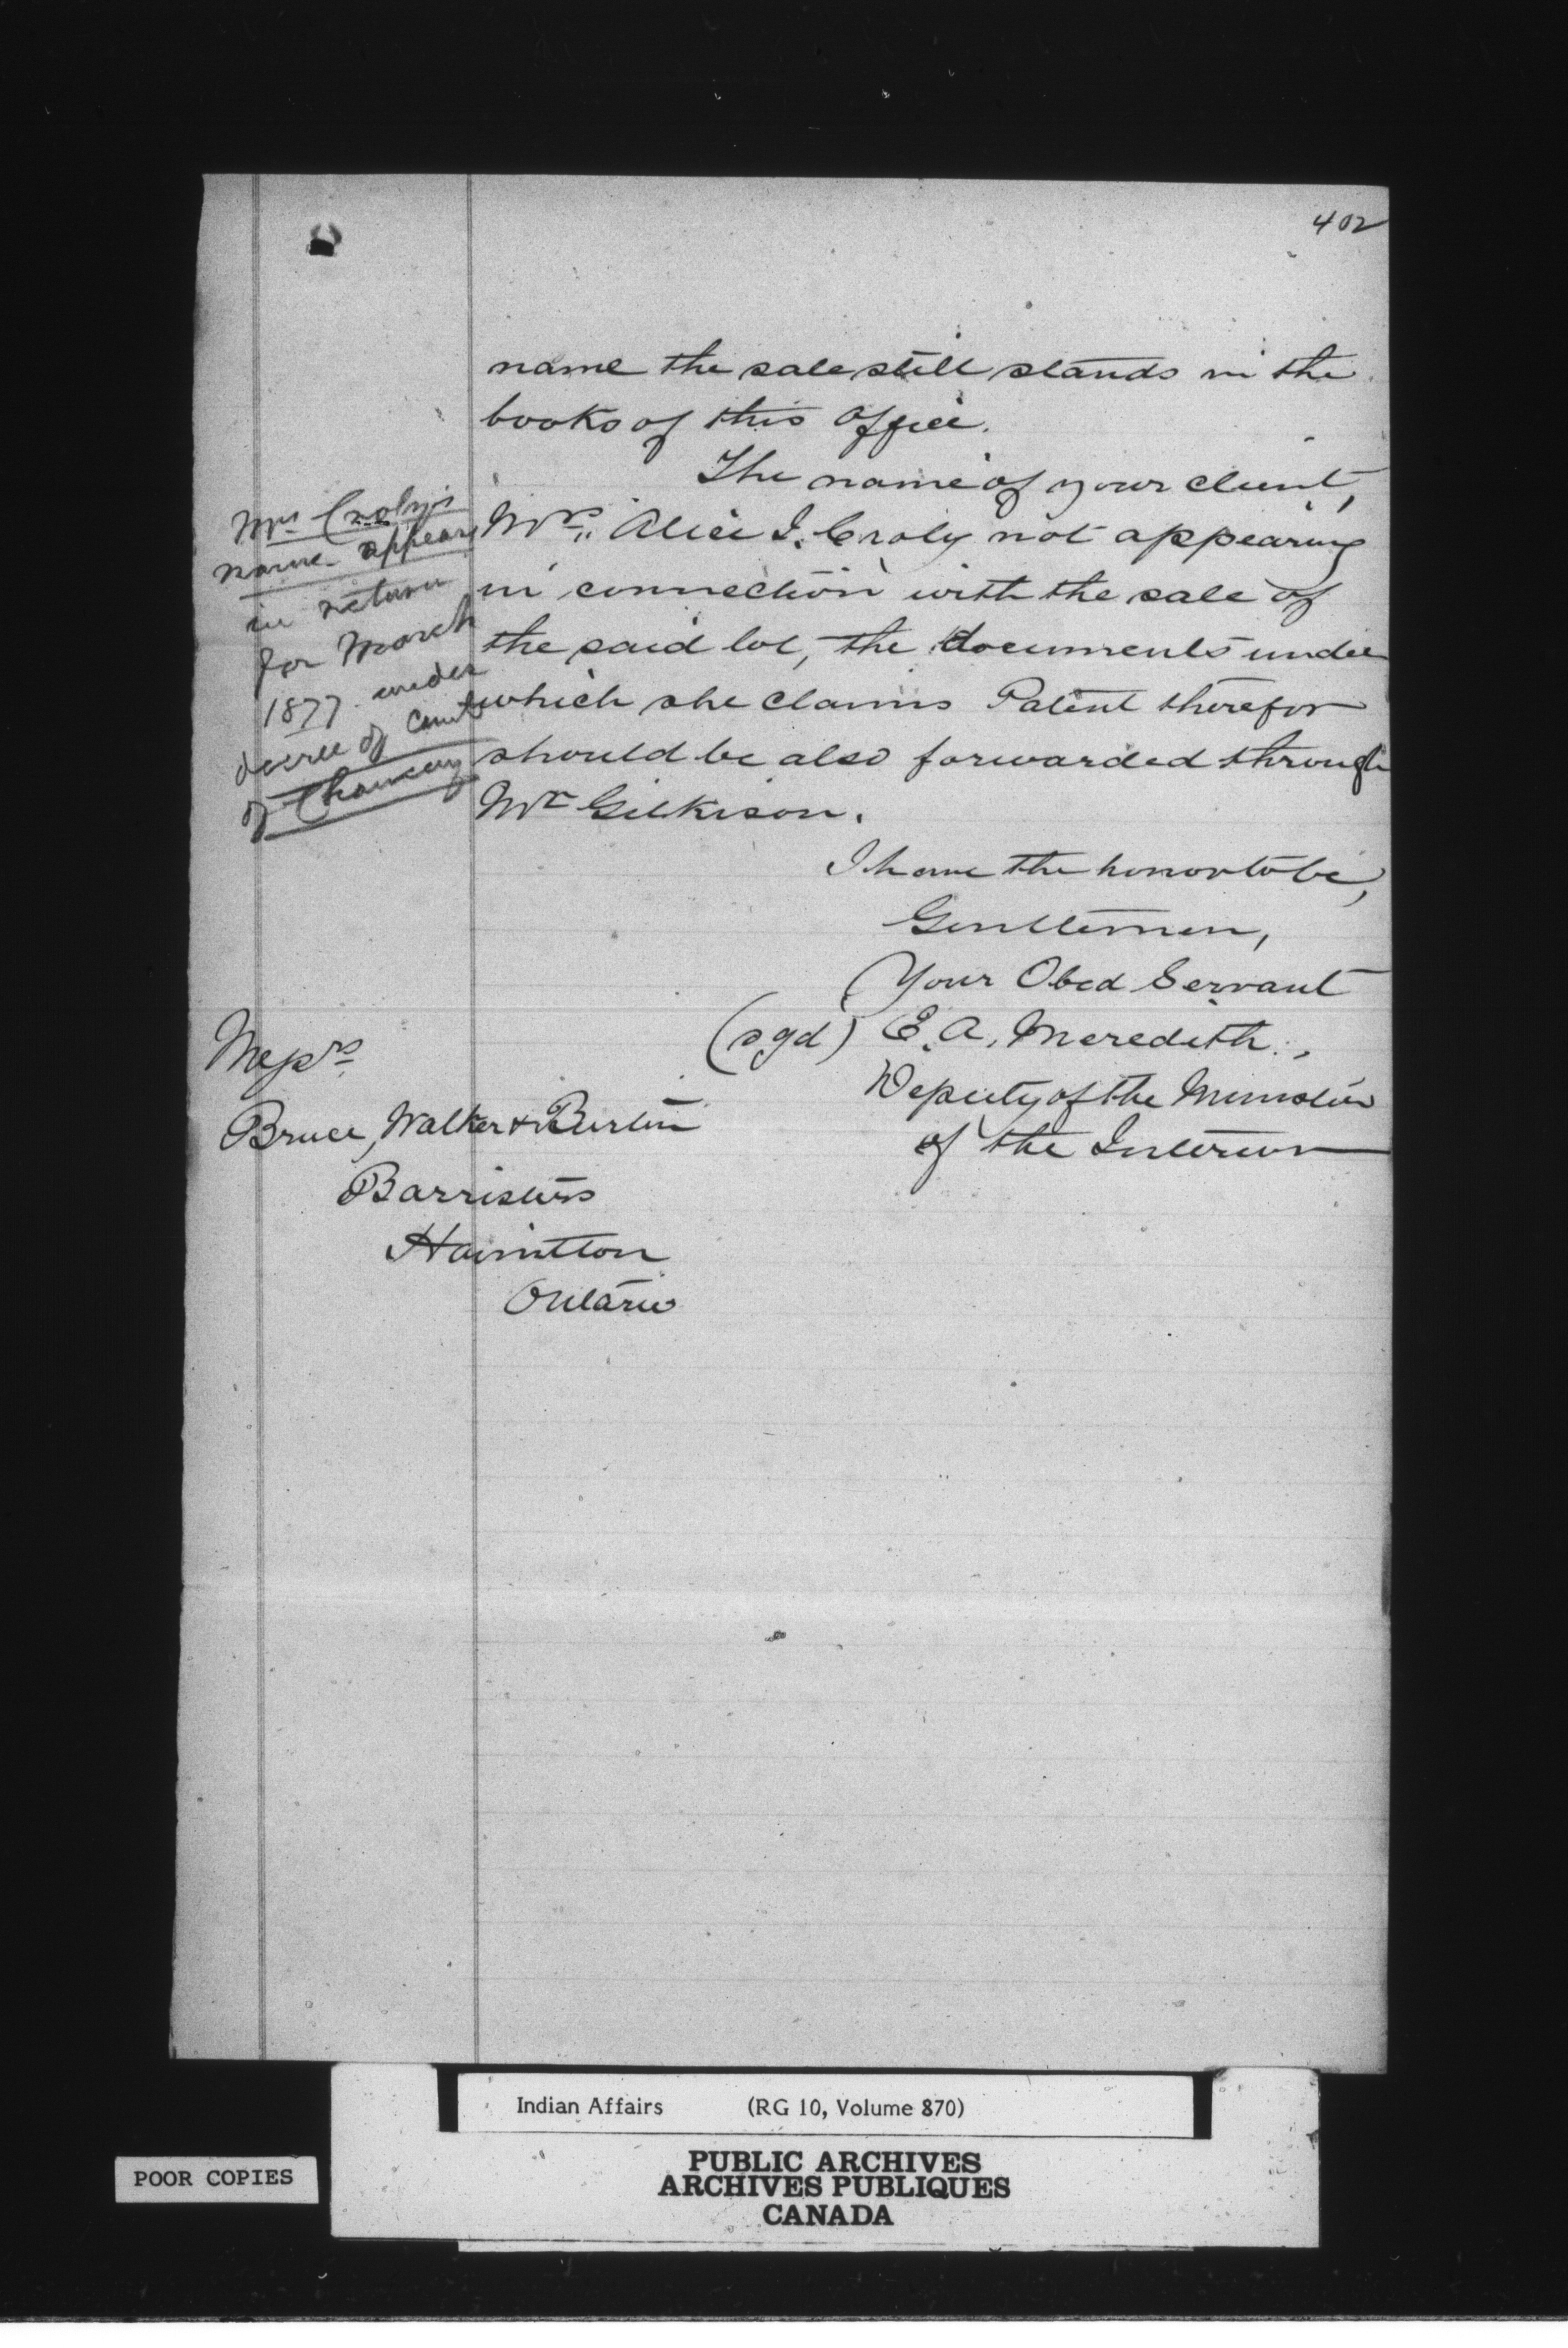 402
name the sale still stands in the
books of this Office.
The name of your client,
Mrs. Alice I. Croly not appearing
in connection with the sale of
the said lot, the documents under
which she claims Patent therefor
should be also forwarded through
Mr Gilkison.
Mrs Croly's
name appears
in return
for March
1877 under
decree of Court
of Chancery
I have the honor to be,
Gentlemen,
Your Obed Servant
(sgd) E. A. Meredith.,
Deputy of the Minister
of the Interior
Messrs
Bruce, Walker & Burton
Barristers
Hamilton
Ontario
Indian Affairs (RG 10, Volume 870)
POOR COPIES
PUBLIC ARCHIVES
ARCHIVES PUBLIQUES
CANADA